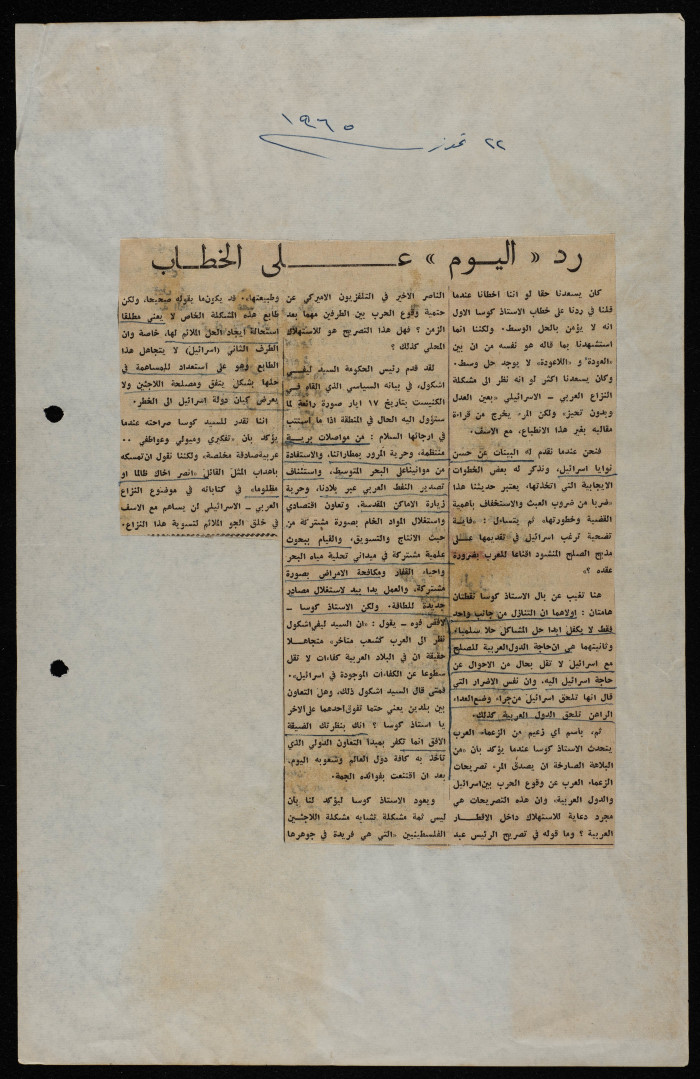 ٢٢ تموز ١٩٦٥
رد « اليوم » على الخطاب
كان يسعدنا حقا لو اننا اخطانا عندما
قلنا في ردنا على خطاب الاستاذ كوسا الاول
انه لا يؤمن بالحل الوسط. ولكننا انما
استشهدنا بما قاله هو نفسه من ان بين
«العودة» و «اللاعودة» لا يوجد حل وسط.
وكان يسعدنا اكثر لو انه نظر الى مشكلة
النزاع العربي - الاسرائيلي «بعين العدل
وبدون تحيز» ولكن المرء يخرج من قراءة
مقاليه بغير هذا الانطباع، مع الاسف.
فنحن عندما نقدم له البينات عن حسن
نوايا اسرائيل، ونذكر له بعض الخطوات
الايجابية التي اتخذتها، يعتبر حديثنا هذا
«ضربا من ضروب العبث والاستخفاف باهمية
القضية وخطورتها»، ثم يتساءل : «فاية
تضحية ترغب اسرائيل في تقديمها على
مذبح الصلح المنشود اقناعا للعرب بضرورة
عقده ؟»
هنا تغيب عن بال الاستاذ كوسا نقطتان
هامتان : اولاهما ان التنازل من جانب واحد
فقط لا يكفل ابدا حل المشاكل حلا سلميا،
وثانيتهما هي ان حاجة الدول العربية للصلح
مع اسرائيل لا تقل بحال من الاحوال عن
حاجة اسرائيل اليه، وان نفس الاضرار التي
قال انها تلحق اسرائيل من جراء وضع العداء
الراهن تلحق الدول العربية كذلك.
ثم، باسم اي زعيم من الزعماء العرب
يتحدث الاستاذ كوسا عندما يؤكد بان «من
البلاهة الصارخة ان يصدق المرء تصريحات
الزعماء العرب عن وقوع الحرب بين اسرائيل
والدول العربية، وان هذه التصريحات هي
مجرد دعاية للاستهلاك داخل الاقطار
العربية ؟ وما قوله في تصريح الرئيس عبد
الناصر الاخير في التلفزيون الاميركي عن
حتمية وقوع الحرب بين الطرفين مهما بعد
الزمن ؟ فهل هذا التصريح هو للاستهلاك
المحلي كذلك ؟
لقد قدم رئيس الحكومة السيد ليفي
اشكول، في بيانه السياسي الذي القاه في
الكنيست بتاريخ ١٧ ايار صورة رائعة لما
ستؤول اليه الحال في المنطقة اذا ما استتب
في ارجائها السلام : من مواصلات برية
منتظمة، وحرية المرور بمطاراتنا، والاستفادة
من موانيناعلى البحر المتوسط، واستئناف
تصدير النفط العربي عبر بلادنا، وحرية
زيارة الاماكن المقدسة، وتعاون اقتصادي
واستغلال المواد الخام بصورة مشتركة من
حيث الانتاج والتسويق، والقيام ببحوث
علمية مشتركة في ميداني تحلية مياه البحر
واحياء القفار ومكافحة الامراض بصورة
مشتركة، والعمل يدا بيد لاستغلال مصادر
جديدة للطاقة. ولكن الاستاذ كوسا -
لافض فوه - يقول : «ان السيد ليفي اشكول
نظر الى العرب كشعب متاخر» متجاهلا
حقيقة ان في البلاد العربية كفاءات لا تقل
سطوعا عن الكفاءات الموجودة في اسرائيل».
فمتى قال السيد اشكول ذلك، وهل التعاون
بين بلدين يعني حتما تفوق احدهما على الاخر
يا استاذ كوسا ؟ انك بنظرتك الضيقة
الافق انما تكفر بمبدا التعاون الدولي الذي
تاخذ به كافة دول العالم وشعوبه اليوم،
بعد ان اقتنعت بفوائده الجمة.
ويعود الاستاذ كوسا ليؤكد لنا بان
ليس ثمة مشكلة تشابه مشكلة اللاجئين
الفلسطينيين «التي هي فريدة في جوهرها
وطبيعتها». قد يكون ما يقوله صحيحا، ولكن
طابع هذه المشكلة الخاص لا يعني مطلقا
استحالة ايجاد الحل الملائم لها، خاصة وان
الطرف الثاني (اسرائيل) لا يتجاهل هذا
الطابع وهو على استعداد للمساهمة في
حلها بشكل يتفق ومصلحة اللاجئين ولا
يعرض كيان دولة اسرائيل الى الخطر.
اننا نقدر للسيد كوسا صراحته عندما
يؤكد بان «تفكيري وميولي وعواطفي ..
عربية صادقة مخلصة، ولكننا نقول ان تمسكه
باهداب المثل القائل «انصر اخاك ظالما او
مظلوما» في كتاباته في موضوع النزاع
العربي - الاسرائيلي لن يساهم مع الاسف
في خلق الجو الملائم لتسوية هذا النزاع.